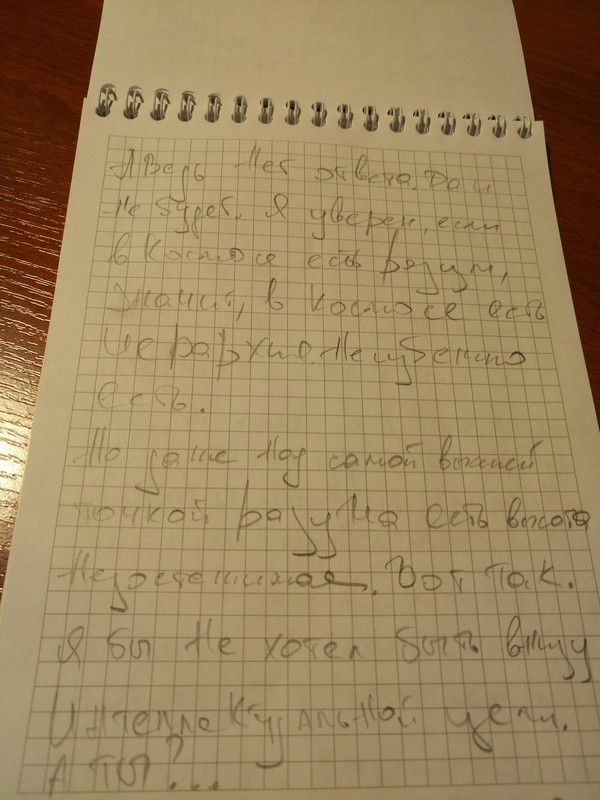 А ведь нет ответа. Да и
не будет. Я уверен, если
в космосе есть разум,
значит, в космосе есть
иерархия. Неизбежно
есть.
Но даже над самой высшей
точкой разума есть высота
недостижимая. Вот так.
Я бы не хотел быть внизу
интеллектуальной цепи.
А ты?...